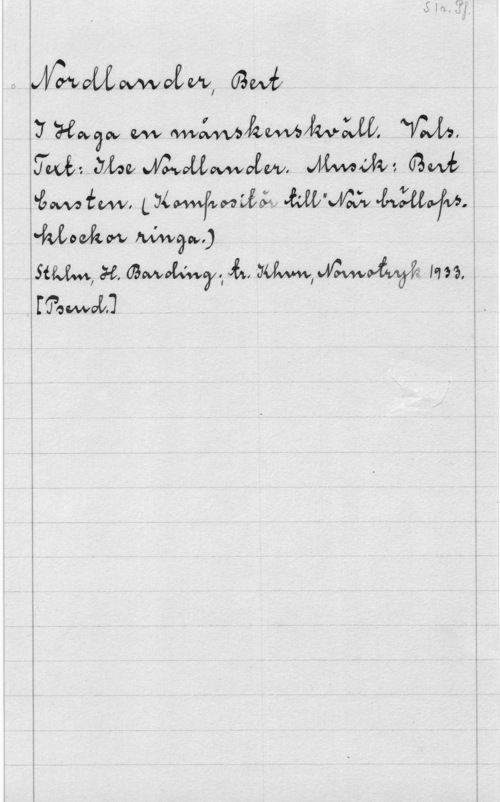 Sln. Pf.
Nordlander, Bert
I Haga en månskenskväll. Vals.
Text: Ilse Nordlander. Musik: Bert
Carsten. (Kompositör till "När bröllops-
klockor ringa.)
Sthlm, H. Barding; tr. Khvn, Nornotryk 1933.
[Pseud.]